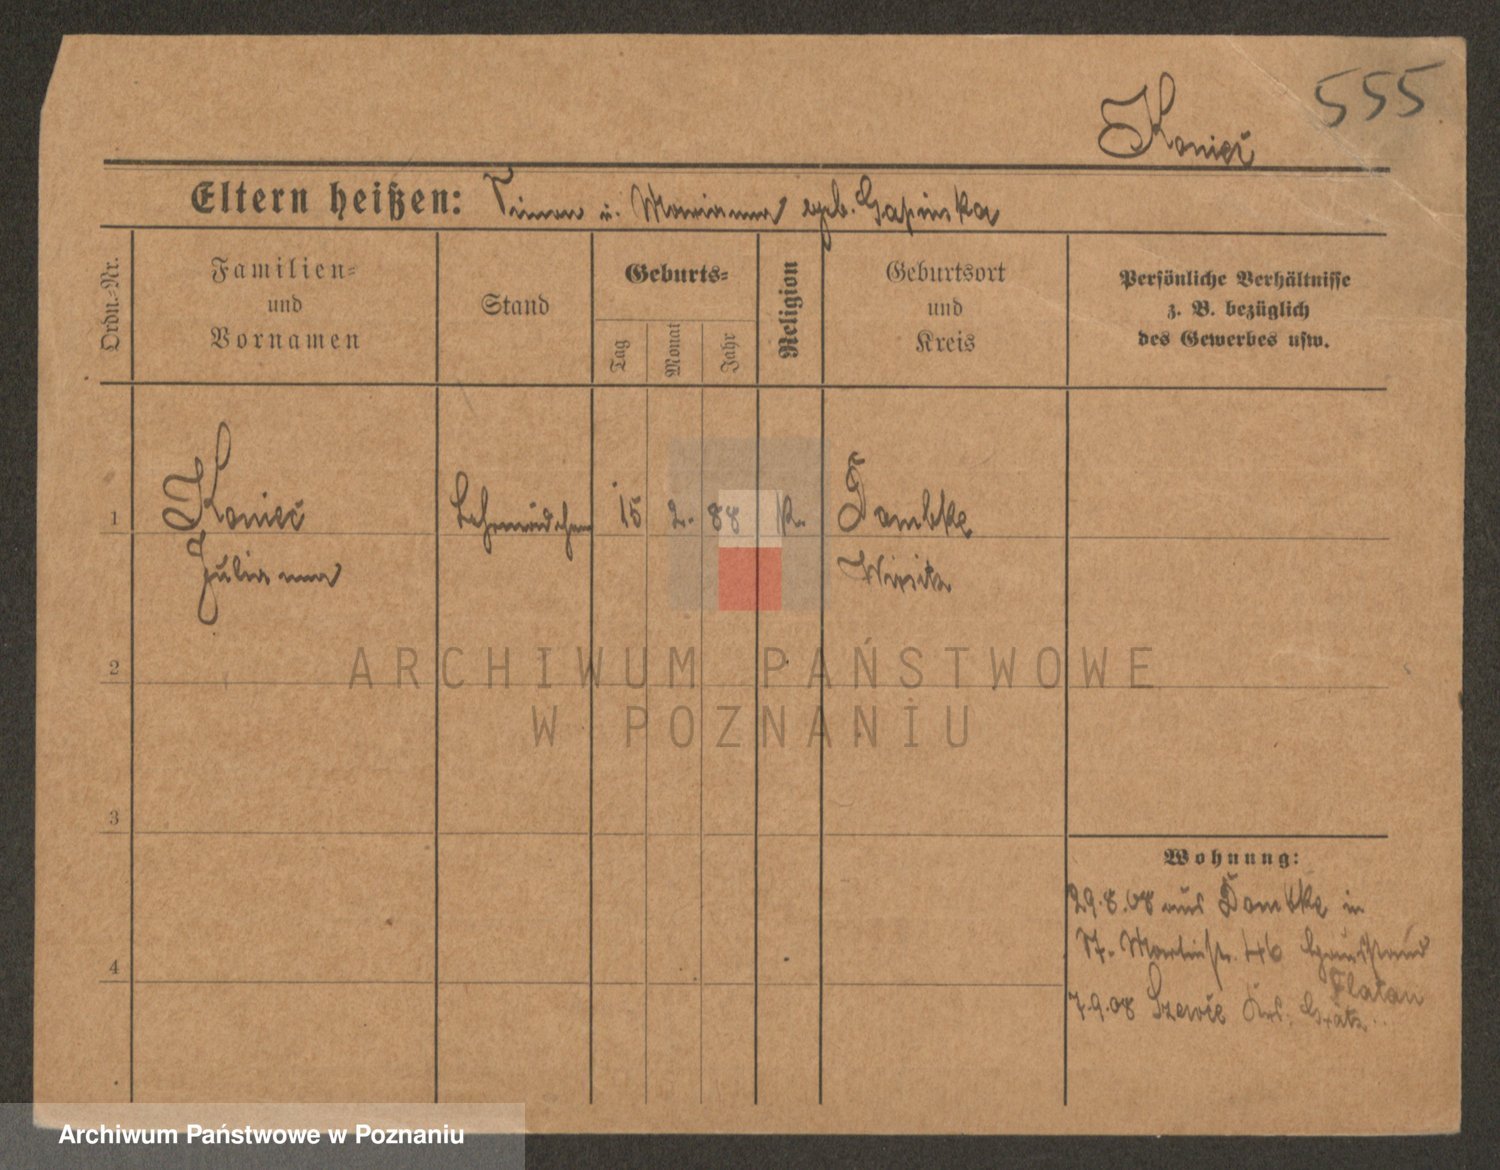 555
Konieč
Eltern heißen: Simon u. Marianna geb. Gapinska
Ordn.-Nr.
Familien=
und
Vornamen
Stand
Geburts=
Tag
Monat
Jahr
Religion
Geburtsort
und
Kreis
Persönliche Verhältnisse
z. B. bezüglich
des Gewerbes usw.
1 Konieč Lehrmädchen 15 2. 88 k. Dombke
Julianna Wirsitz
2
3
4
Wohnung:
29.8.08 aus Dombke in
St. Martinstr. 46
Flatau
7.9.08 Szewce Krs. Grätz.
ARCHIWUM PAŃSTWOWE
W POZNANIU
Archiwum Państwowe w Poznaniu